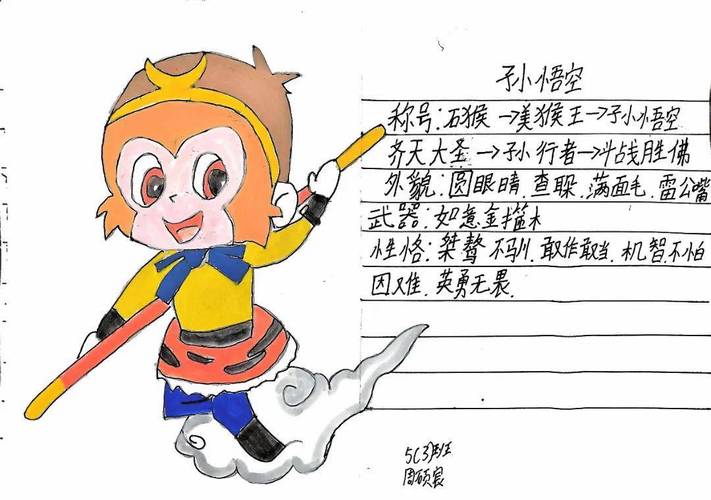 孙悟空
称号:石猴→美猴王→孙悟空
齐天大圣→孙行者→斗战胜佛
外貌:圆眼睛.查腮.满面毛.雷公嘴
武器:如意金箍棒
性格:桀骜不驯.敢作敢当.机智不怕
困难.英勇无畏.
5(3)班
周硕宸